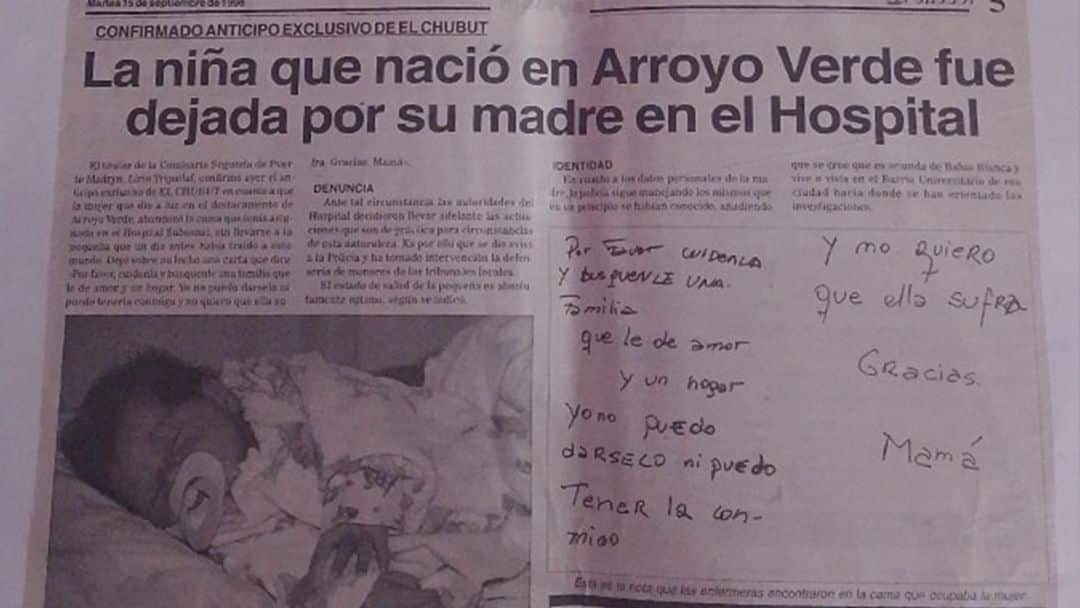 Martes 15 de septiembre de 1998
5
CONFIRMADO ANTICIPO EXCLUSIVO DE EL CHUBUT
La niña que nació en Arroyo Verde fue
dejada por su madre en el Hospital
El titular de la Comisaría Segunda de Puer-
to Madryn, confirmó ayer el an-
ticipo exclusivo de EL CHUBUT en cuanto a que
la mujer que dio a luz en el destacamento de
Arroyo Verde, abandonó la cama que tenía asig-
nada en el Hospital Subzonal, sin llevarse a la
pequeña que un día antes había traído a este
mundo. Dejó sobre su lecho una carta que dice
"Por favor, cuídenla y búsquenle una familia que
le de amor y un hogar. Yo no puedo darselo ni
puedo tenerla conmigo y no quiero que ella su-
fra. Gracias. Mamá".
DENUNCIA
Ante tal circunstancia las autoridades del
Hospital decidieron llevar adelante las actua-
ciones que son de práctica para circunstancias
de esta naturaleza. Es por ello que se dio aviso
a la Policía y ha tomado intervención la defen-
soría de menores de los tribunales locales.
El estado de salud de la pequeña es absolu-
tamente óptimo, según se indicó.
IDENTIDAD
En cuanto a los datos personales de la ma-
dre, la policía sigue manejando los mismos que
en un principio se habían conocido, añadiendo
que se cree que es oriunda de Bahía Blanca y
vive o vivía en el Barrio Universitario de esa
ciudad hacia donde se han orientado las
investigaciones.
Por Favor cuidenla
Y busquenle una
Familia
que le de amor
y un hogar
Yo no puedo
darselo ni puedo
Tener la con-
migo
Y no quiero
que ella sufra
Gracias
Mamá
Esta es la nota que las enfermeras encontraron en la cama que ocupaba la mujer